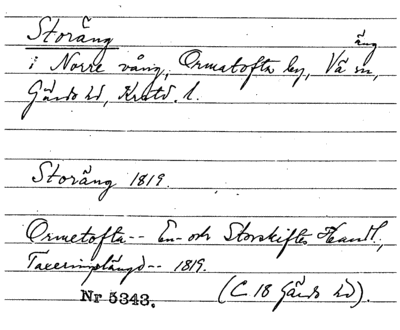 Storäng
äng
i Norre vång, Ormatofta by, Vä sn,
Gärds hd, Krstd. l.
Storäng 1819.
Ormetofta-- En- och Storskifts Handl.,
Taxeringslängd-- 1819.
Nr 5343. (C 18 Gärds hd).